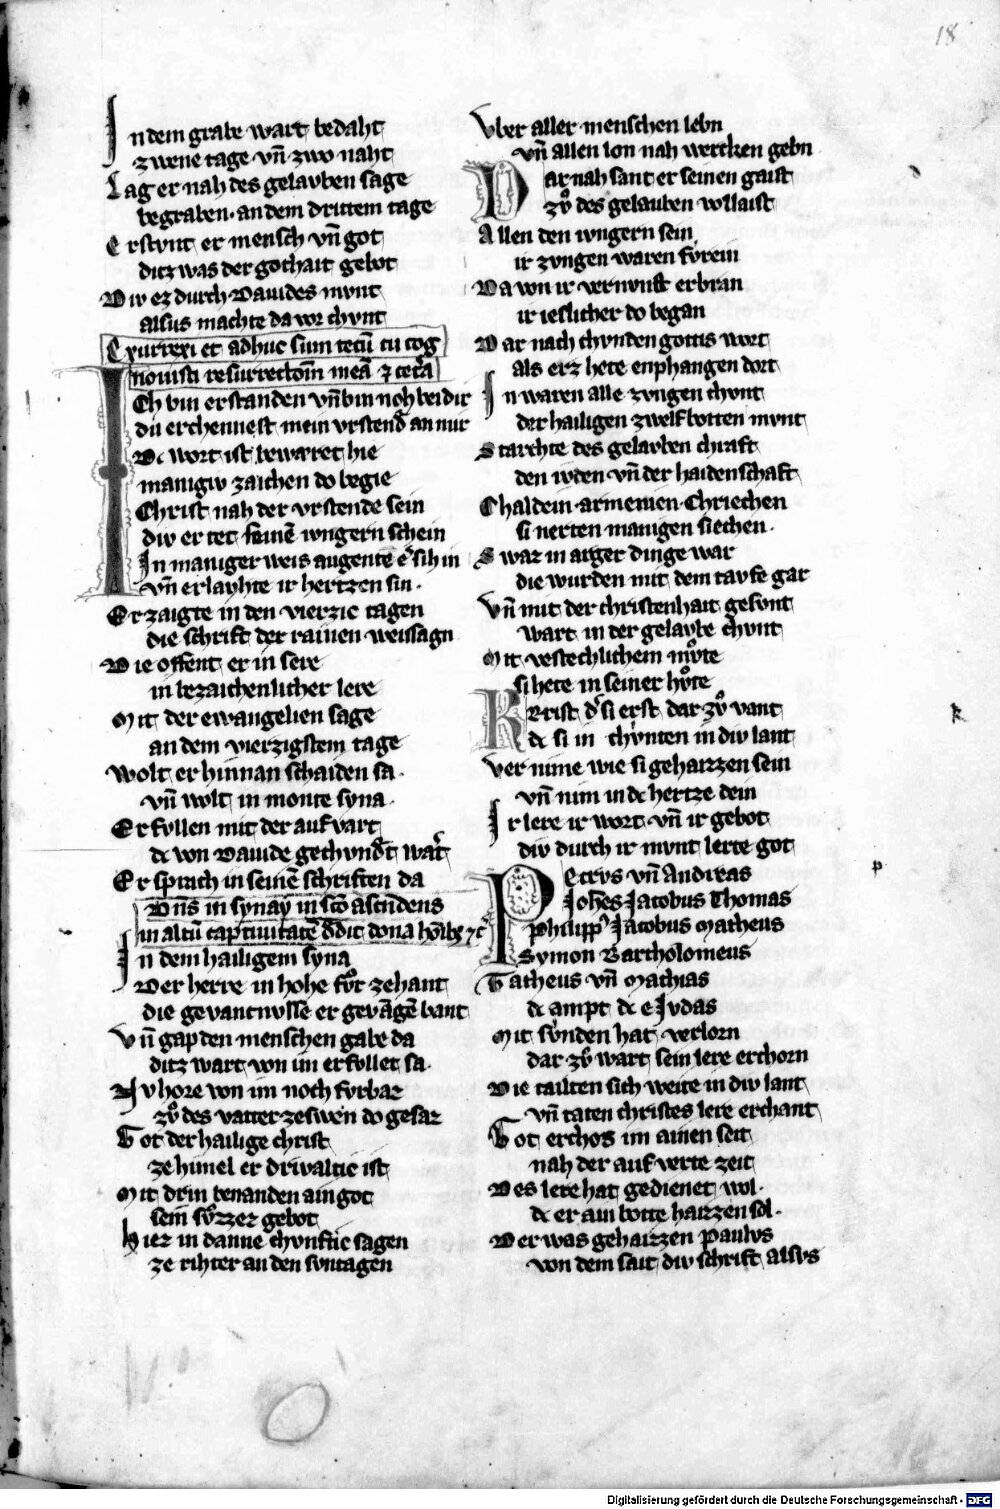 18
In dem grabe wart bedaht
zwene tage vn̄ zwo naht
Lag er nah des gelavben sage
begraben · an dem drittem tage
Erstvnt er mensch vn̄ got
ditz was der gothait gebot
Div ez durch Dauides mvnt
alsus machte da vor chvnt
Exurrexi et adhuc sum tecū tu cog
novisti resurrectoīm meā ⁊ cetͤa
Ich bin erstanden vn̄ bin noch bei dir
du erchennest mein vrstend an mir
Dc wort ist bewaret hie
manigiv zaichen do begie
Christ nah der vrstende sein
div er tet seinē ivngern schein
In maniger weis augente eͬ sih in
vn̄ erlavhte ir hertzen sin ·
Er zaigte in den vierzic tagen
die schrift der rainen weissagn
Die offent er in sere
in bezaichenlicher lere
Mit der ewangelien sage
an dem vierzigstem tage
Wolt er hinnan schaiden sa ·
vn̄ wolt in monte syna ·
Erfvllen mit der auf vart
dc von Dauide gechvndt wart
Er sprach in seinē schriften da
Dn̄s in synay in sc̄o ascendens
in altū captivitatē dedit dona hoībȝ ⁊c
In dem hailigem syna
Der herre in hohe fvͦr zehant
die gevantnvsse er gevāgē bant
Vn̄ gap den menschen gabe da
ditz wart von im erfvllet sa ·
Nv hore von im noch fvrbaz
zvͦ des vatter zeswen do gesaz
Got der hailige christ
ze himel er drivaltic ist
Mit drin benanden ain got
sein svͦzzez gebot
Hiez in danne chvnftic sagen
ze rihter an den svntagen
Vber aller menschen lebn
vn̄ allen lon nah wercken gebn
Dar nah sant er seinen gaist
zvͦ des gelauben vollaist
Allen den ivngern sein
ir zvngen waren fvrein
Da von ir vernvnst erbran
ir ieslicher do began
Dar nach chvnden gottis wort
als erz hete enphangen dort
In waren alle zvngen chvnt
der hailigen zwelfbotten mvnt
Starchte des gelavben chraft
den ivden vn̄ der haidenschaft
Chaldein · armenien · Chriechen
si nerten manigen siechen ·
Swaz in arger dinge war
die wurden mit dem tavfe gar
Vn̄ mit der christenhait gesvnt
wart in der gelavbe chvnt
Mit vestechlichem mvͦte
si hete in seiner hvͦte
Krist dͤ si erst dar zvͦ vant
dc si in chvnten in div lant
Vernime wie si gehaizzen sein
vn̄ nim in dc hertze dein
Ir lere ir wort vn̄ ir gebot
div durch ir mvnt lerte got
Petrvs vn̄ Andreas
Johēs Jacobus Thomas
Philippꝰ Jacobus Matheus
Symon Bartholomeus
Tatheus vn̄ Mathias
dc ampt dc e Jvdas
Mit svnden hat verlorn
dar zvͦ wart sein lere erchorn
Die tailten sich weite in div lant
vn̄ taten christes lere erchant
Got erchos im ainen seit
nah der auf verte zeit
Des lere hat gedienet wol ·
dc er ain botte haizzen sol ·
Der was gehaizzen Paulvs
von dem sait div schrift alsvs
k
p
Digitalisierung gefördert durch die Deutsche Forschungsgemeinschaft - DFG